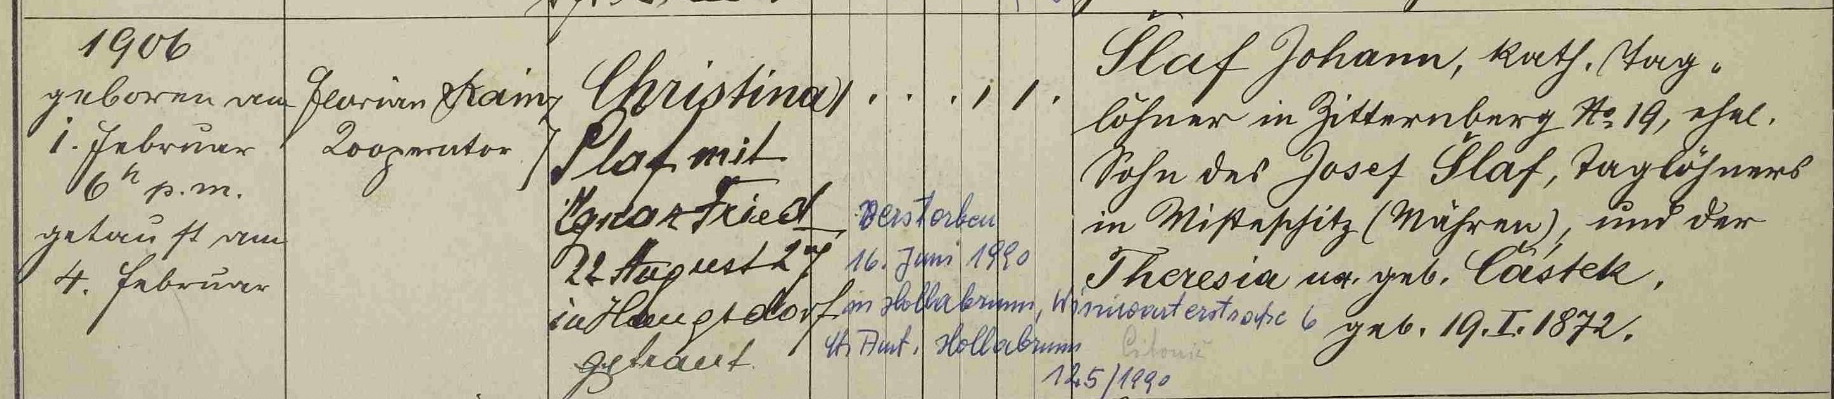 1906
geboren am
1. Februar
6h p.m.
getauft am
4. Februar
Florian
Kooperator
Christina
Slaf mit
Ignaz Fried
22 August 27
in Haugsdorf
getraut
verstorben
16. Juni 1990
in Hollabrunn, Winiwarterstraße 6
St. Amt. Hollabrunn
125/1990
Slaf Johann, kath. Tag-
löhner in Zitternberg No 19, ehel.
Sohn des Josef Slaf, Taglöhners
in Misteschitz (Mähren), und der
Theresia geb. Častek,
geb. 19.I.1872.